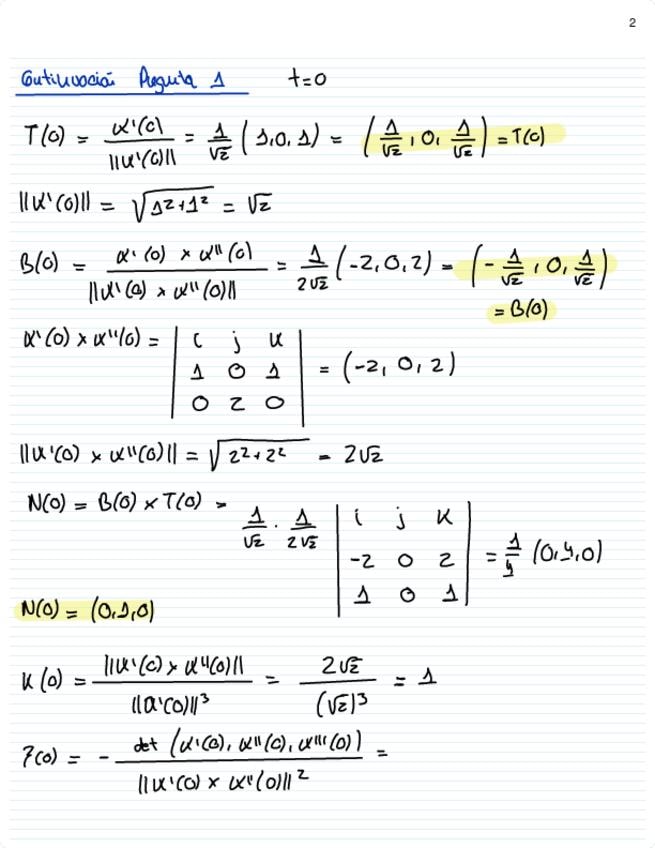 2
Continuación Pregunta 1 t=0
T(0) = α'(0) / ||α'(0)|| = 1/√2 (1,0,1) = (1/√2, 0, 1/√2) = T(0)
||α'(0)|| = √(1²+1²) = √2
B(0) = α'(0) × α''(0) / ||α'(0) × α''(0)|| = 1/2√2 (-2,0,2) = (-1/√2, 0, 1/√2)
= B(0)
α'(0) × α''(0) = | i j k | = (-2, 0, 2)
1 0 1
0 2 0
||α'(0) × α''(0)|| = √(2²+2²) = 2√2
N(0) = B(0) × T(0) = 1/√2 · 1/2√2 | i j k | = 1/4 (0,4,0)
-2 0 2
1 0 1
N(0) = (0,1,0)
K(0) = ||α'(0) × α''(0)|| / ||α'(0)||³ = 2√2 / (√2)³ = 1
τ(0) = - det (α'(0), α''(0), α'''(0)) / ||α'(0) × α''(0)||² =